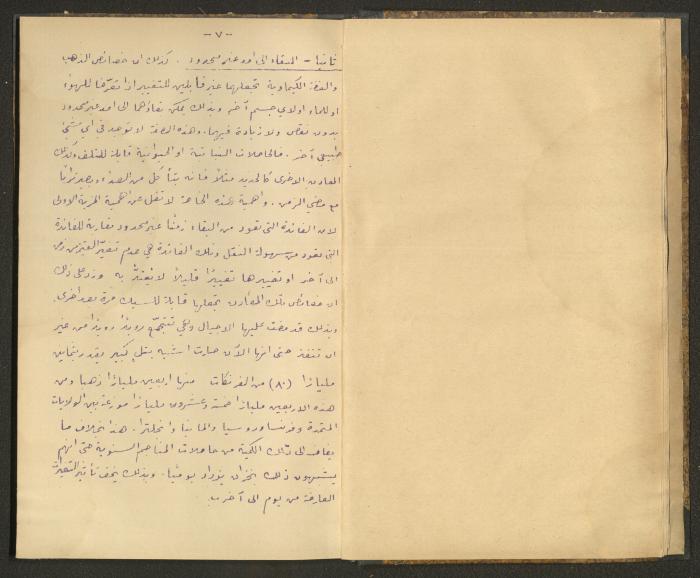 -٧-
ثانيا - البقاء الى امد غير محدود. كذلك ان خصائص الذهب
والفضة الكيماوية تجعلها غير قابلين للتغيير اذا تعرّضا للهواء
او للماء او لاي جسم آخر وبذلك يمكن بقاؤهما الى امد غير محدود
بدون نقص ولا زيادة فيهما. وهذه الصفة لا توجد في اي شيء
طبيعي آخر. فالحاصلات النباتية او الحيوانية قابلة للتلف وكذلك
المعادن الاخرى كالحديد مثلاً فانه يتأكل من الصداء ويصير ترابًا
مع مضي الزمن. واهمية هذه الخاصة لا تقل عن اهمية المزية الاولى
لان الفائدة التي تعود من البقاء زمنًا غير محدود مقاربة للفائدة
التي تعود من سهولة النقل وتلك الفائدة هي عدم تغيّر القيم من زمن
الى آخر او تغييرها تغييرًا قليلاً لا يُعتدّ به وزد على ذلك
ان خصائص تلك المعادن تجعلها قابلة للسبك مرة بعد اخرى.
وبذلك قد مضت عليها الاجيال وهي تتجمّع رويدًا رويدًا من غير
ان تنفذ حتى انها الآن صارت اشبه بتل كبير يقدر بثمانين
مليارًا (٨٠) من الفرنكات منها اربعين مليارًا ذهبا ومن
هذه الاربعين مليارًا خمسة وعشرون مليارًا موزعة بين الولايات
المتحدة وفرنسا وروسيا والمانيا وانجلترا. هذا بخلاف ما
يضاف الى تلك الكمية من حاصلات المناجم السنوية حتى انهم
يشبهون ذلك بخزان يزداد يوميًا. وبذلك يخف تأثير التغيرات
الطارئة من يوم الى آخر